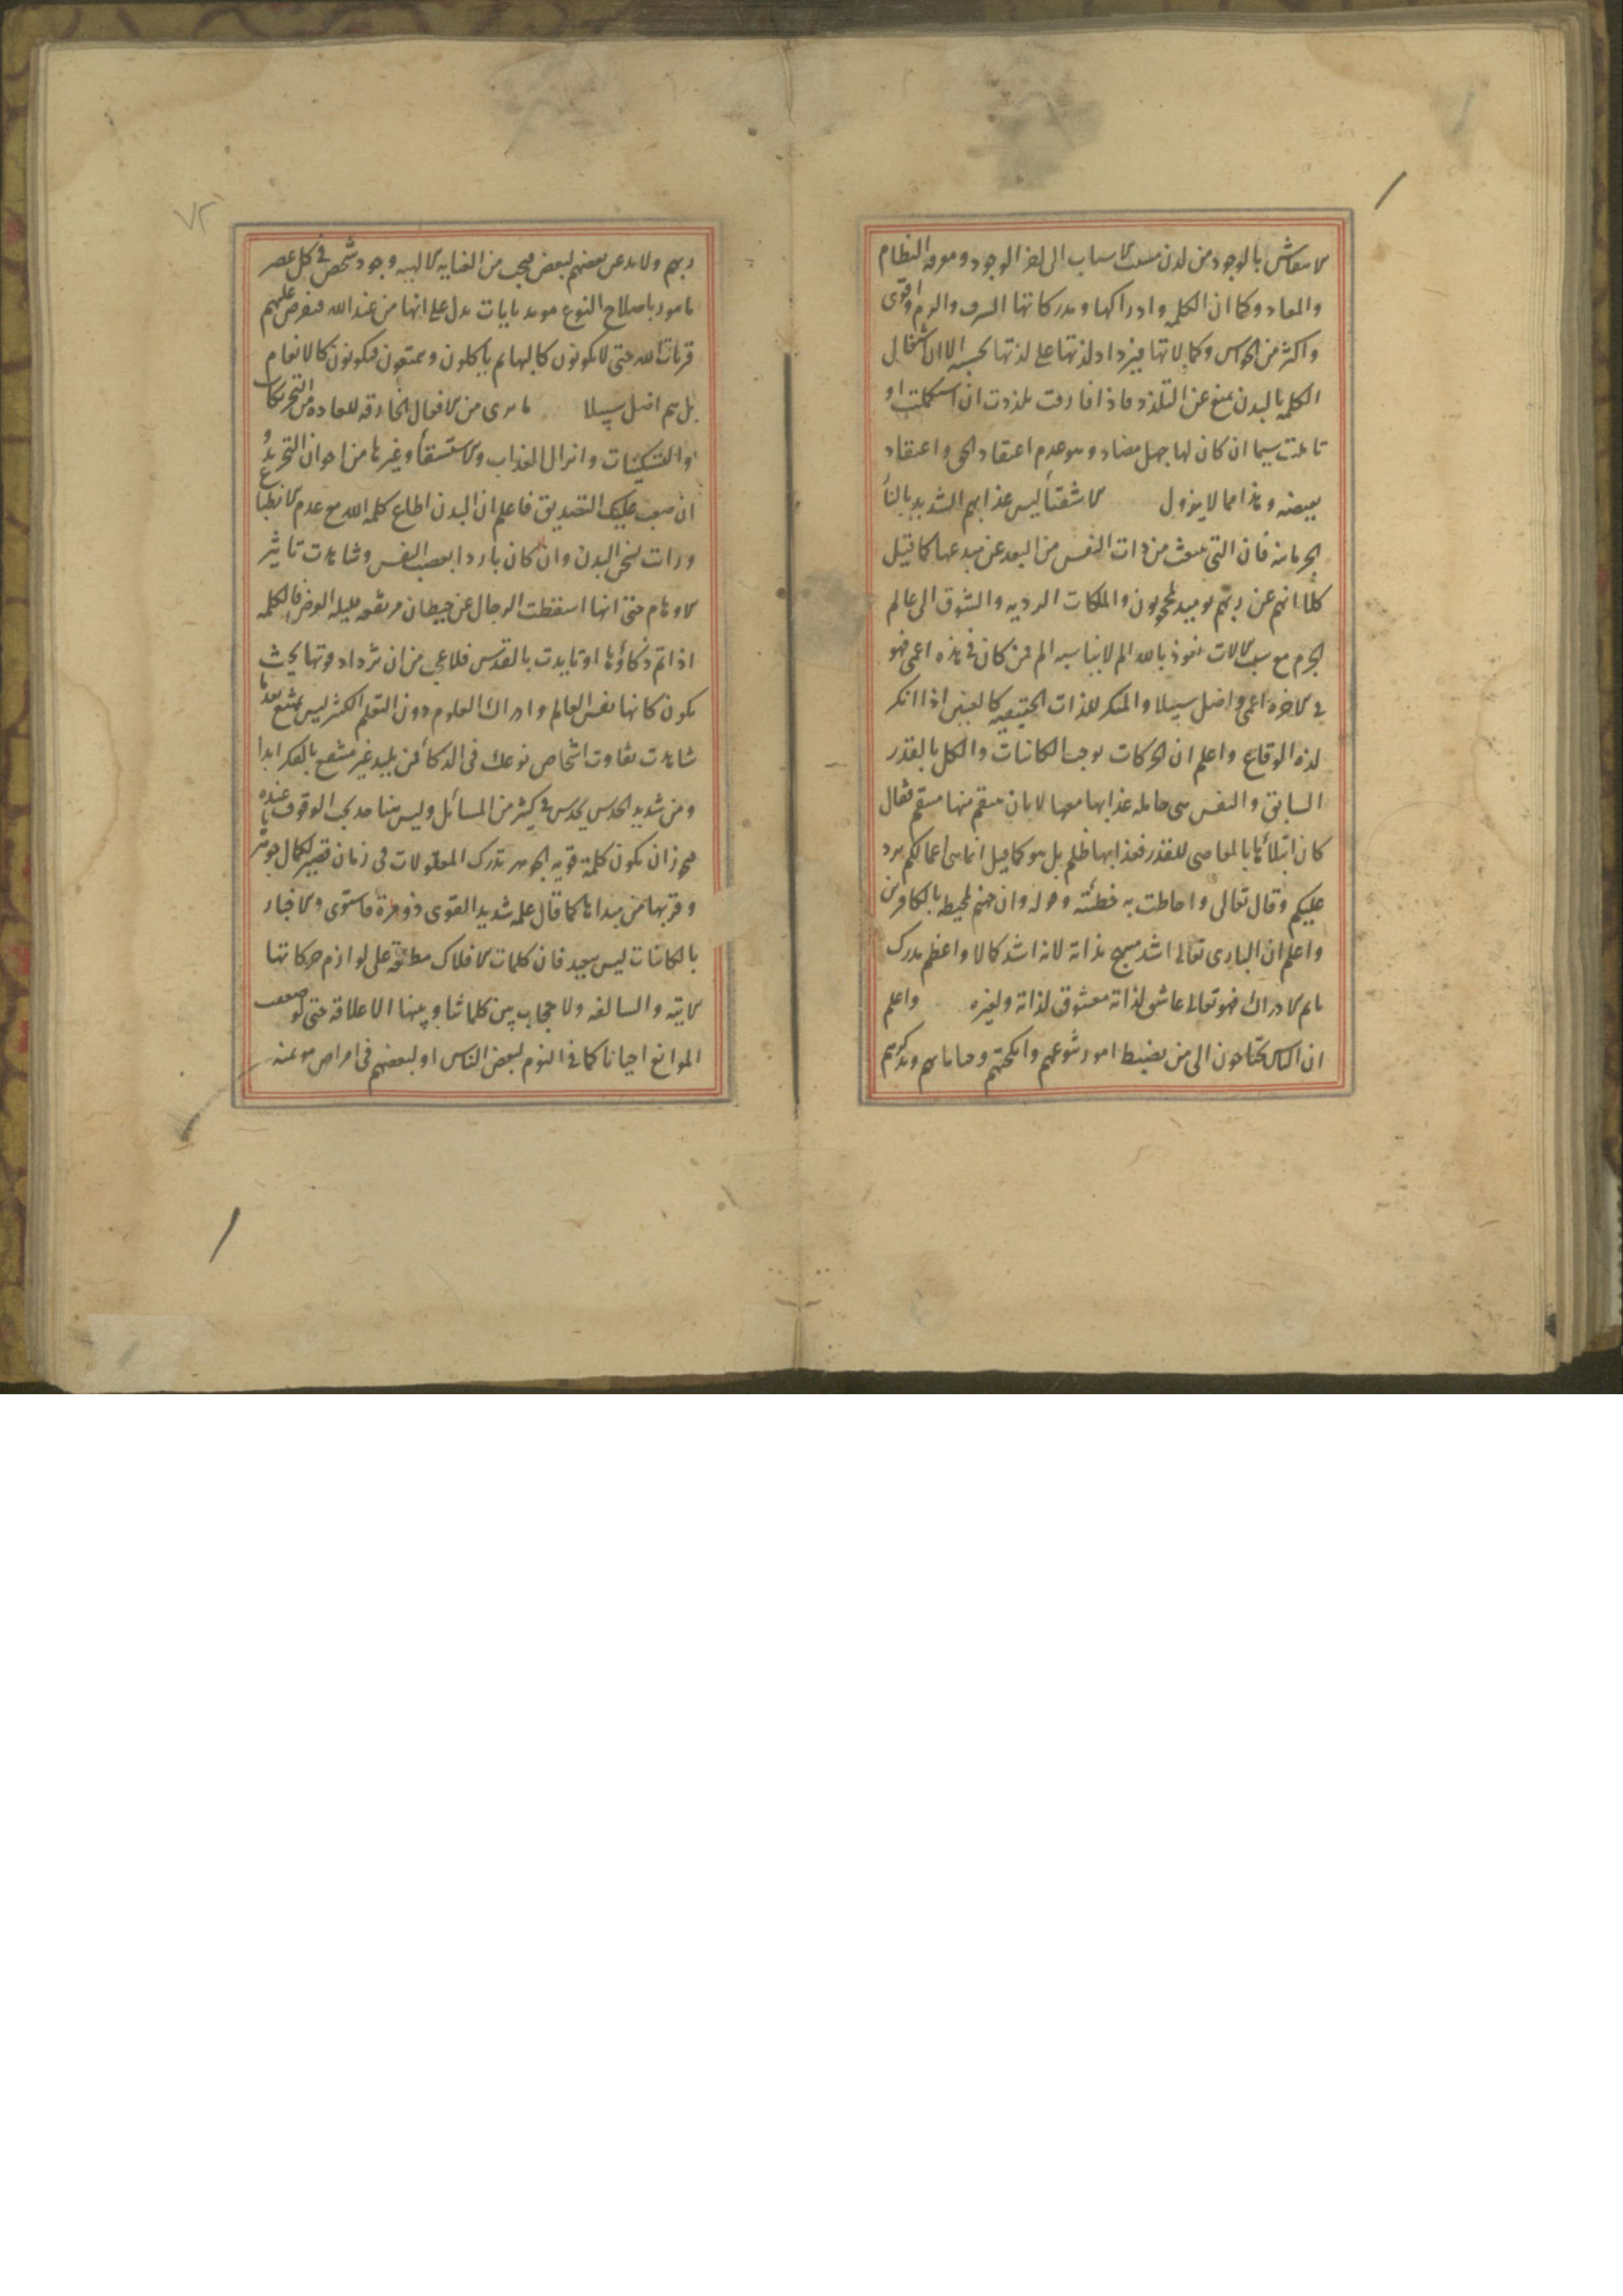 الانتقاش بالوجود من لدن مسبب الاسباب الى اخر الوجود ومعرفه النظام
والمعاد وكما ان الكلمه وادراكها ومدركاتها اشرف والزم واقوى
واكثر من الحواس وكمالاتها فيزداد لذتها على لذتها بحسبه الا ان اشتغال
الكلمه بالبدن يمنع عن التلذذ فاذا فارقت تلذذت ان استكملت او
تالمت سيما ان كان لها جهل مضاد وهو عدم اعتقاد الحق واعتقاد
نقيضه وهذا مما لا يزول الاشقيأ ليس عذابهم الشديد بالنار
الجرمانيه فان التى تنبعث من ذات النفس من البعد عن مبدعها كما قيل
كلا انهم عن ربهم يوميد لمحجوبون والملكات الرديه والشوق الى عالم
الجرم مع سلب الالات نعوذ بالله الم لا يناسبه الم فمن كان فى هذه اعمى فهو
فى الاخره اعمى واضل سبيلا والمنكر للذات الحقيقيه كالعنين اذا انكر
لذه الوقاع واعلم ان الحركات توجب الكائنات والكل بالقدر
السابق والنفس هى حامله عذابها معها لا بان ينتقم منها منتقم فيقال
كان ابتلاؤها بالمعاصى للقدر فعذابها ظلم بل هو كما قيل انما هى اعمالكم ترد
عليكم وقال تعالى واحاطت به خطيئته وقوله وان جهنم لمحيطه بالكافرين
واعلم ان البارى تعالى اشد مبتهج بذاته لانه اشد كمالا واعظم مدرك
باتم الادراك فهو تعالى عاشق لذاته معشوق لذاته ولغيره واعلم
ان الناس يحتاجون الى من يضبط امور شرعهم وانكحتهم وجناياتهم ويذكرهم
٧٢
ربهم ولا بد عن بعضهم لبعض فيجب من العنايه الالهيه وجود شخص فى كل عصر
مامور باصلاح النوع مويد بايات تدل على انها من عند الله فيفرض عليهم
قربات الله حتى لا يكونون كالبهايم ياكلون ويتمتعون فيكونون كالانعام
بل هم اضل سبيلا ما يرى من الافعال الخارقه للعاده من التحريكات
والتسكينات وانزال العذاب والاستسقأ وغيرها من اخوان التجريد و
ان صعب عليك التصديق فاعلم ان البدن اطاع كلمه الله مع عدم الانطباع
ورات تسخن البدن وان كان باردا بغضب النفس وشاهدت تاثير
الاوهام حتى انها اسقطت الرجال عن حيطان مرتفعه قليله العرض فالكلمه
اذا تم ذكاؤها او تايدت بالقدس فلا عجب من ان تزداد قوتها بحيث
يكون كانها نفس العالم وادراك العلوم دون التعلم الكثير ليس بممتنع بعد ما
شاهدت تفاوت اشخاص نوعك فى الذكأ فمن بليد غير منتفع بالفكر ابدا
ومن شديد الحدس يحدس فى كثير من المسائل وليس هنا حد يجب الوقوف عنده
فيجوز ان يكون كلمة قويه الجوهر تدرك المعقولات فى زمان قصير لكمال جوهرها
وقربها من مبداها كما قال علمه شديد القوى ذو مرة فاستوى والاخبار
بالكائنات ليس ببعيد فان كلمات الافلاك مطلعة على لوازم حركاتها
الاتيه والسالفه ولا حجاب بين كلماتنا وبينها الا علاقة حتى لو ضعفت
الموانع احيانا كما فى النوم لبعض الناس او لبعضهم فى امراض موهنه